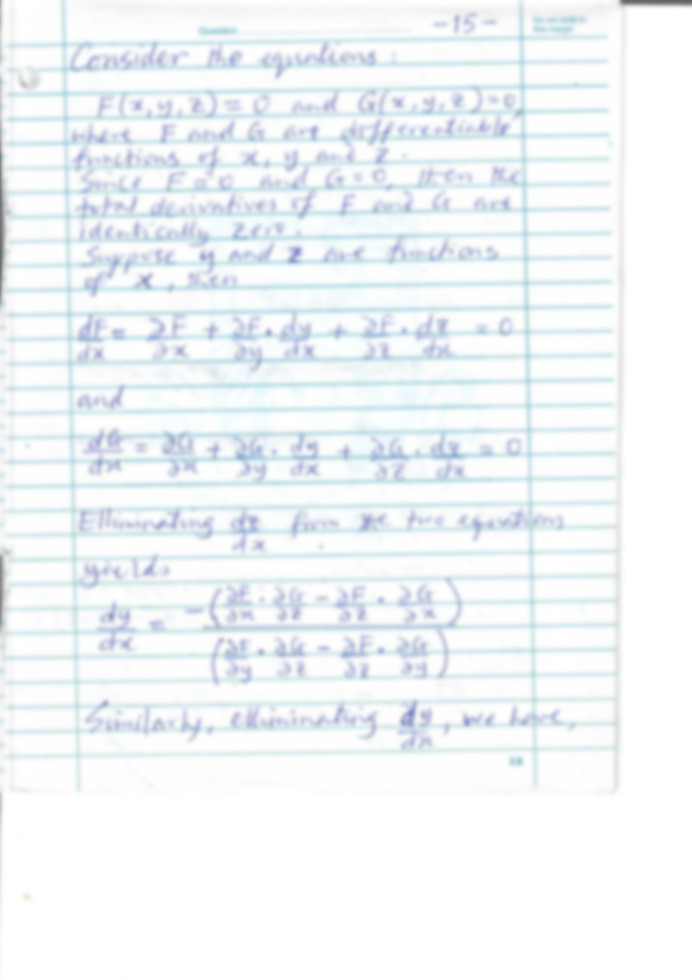 Question
-15-
Do not write in this margin
Consider the equations:
F(x,y,z)=0 and G(x,y,z)=0,
where F and G are differentiable
functions of x, y and z.
Since F=0 and G=0, then the
total derivatives of F and G are
identically zero.
Suppose y and z are functions
of x, then
dF/dx = ∂F/∂x + ∂F/∂y · dy/dx + ∂F/∂z · dz/dx = 0
and
dG/dx = ∂G/∂x + ∂G/∂y · dy/dx + ∂G/∂z · dz/dx = 0
Elliminating dz/dx from the two equations
yields
dy/dx = -(∂F/∂x · ∂G/∂z - ∂F/∂z · ∂G/∂x) / (∂F/∂y · ∂G/∂z - ∂F/∂z · ∂G/∂y)
Similarly, elliminating dy/dx, we have,